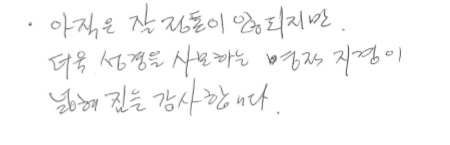 · 아직은 잘 정돈이 안되지만.
더욱 성경을 사모하는 영적 지경이
넓혀 짐을 감사합니다.